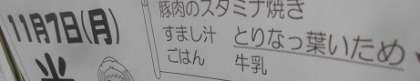 11月7日(月)
豚肉のスタミナ焼き
すまし汁 とりなっ葉いため
ごはん 牛乳